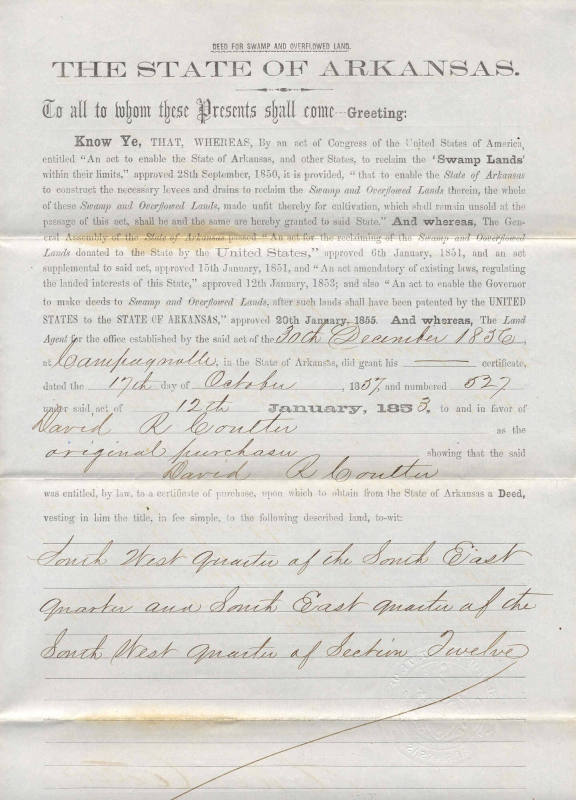 DEED FOR SWAMP AND OVERFLOWED LAND.
THE STATE OF ARKANSAS.
To all to whom these Presents shall come--Greeting:
Know Ye, THAT, WHEREAS, By an act of Congress of the United States of America,
entitled "An act to enable the State of Arkansas, and other States, to reclaim the 'Swamp Lands'
within their limits," approved 28th September, 1850, it is provided, "that to enable the State of Arkansas
to construct the necessary levees and drains to reclaim the Swamp and Overflowed Lands therein, the whole
of these Swamp and Overflowed Lands, made unfit thereby for cultivation, which shall remain unsold at the
passage of this act, shall be and the same are hereby granted to said State." And whereas, The Gen-
eral Assembly of the State of Arkansas passed "An act for the reclaiming of the Swamp and Overflowed
Lands donated to the State by the United States," approved 6th January, 1851, and an act
supplemental to said act, approved 15th January, 1851, and "An act amendatory of existing laws, regulating
the landed interests of this State," approved 12th January, 1853; and also "An act to enable the Governor
to make deeds to Swamp and Overflowed Lands, after such lands shall have been patented by the UNITED
STATES to the STATE OF ARKANSAS," approved 20th January, 1855. And whereas, The Land
Agent for the office established by the said act of the 30th December 1856,
at Campagnolle, in the State of Arkansas, did grant his certificate,
dated the 17th day of October, 1857, and numbered 527
under said act of 12th January, 1853, to and in favor of
David R Coulter as the
original purchaser showing that the said
David R Coulter
was entitled, by law, to a certificate of purchase, upon which to obtain from the State of Arkansas a Deed,
vesting in him the title, in fee simple, to the following described land, to-wit:
South West quarter of the South East
quarter and South East quarter of the
South West quarter of Section Twelve